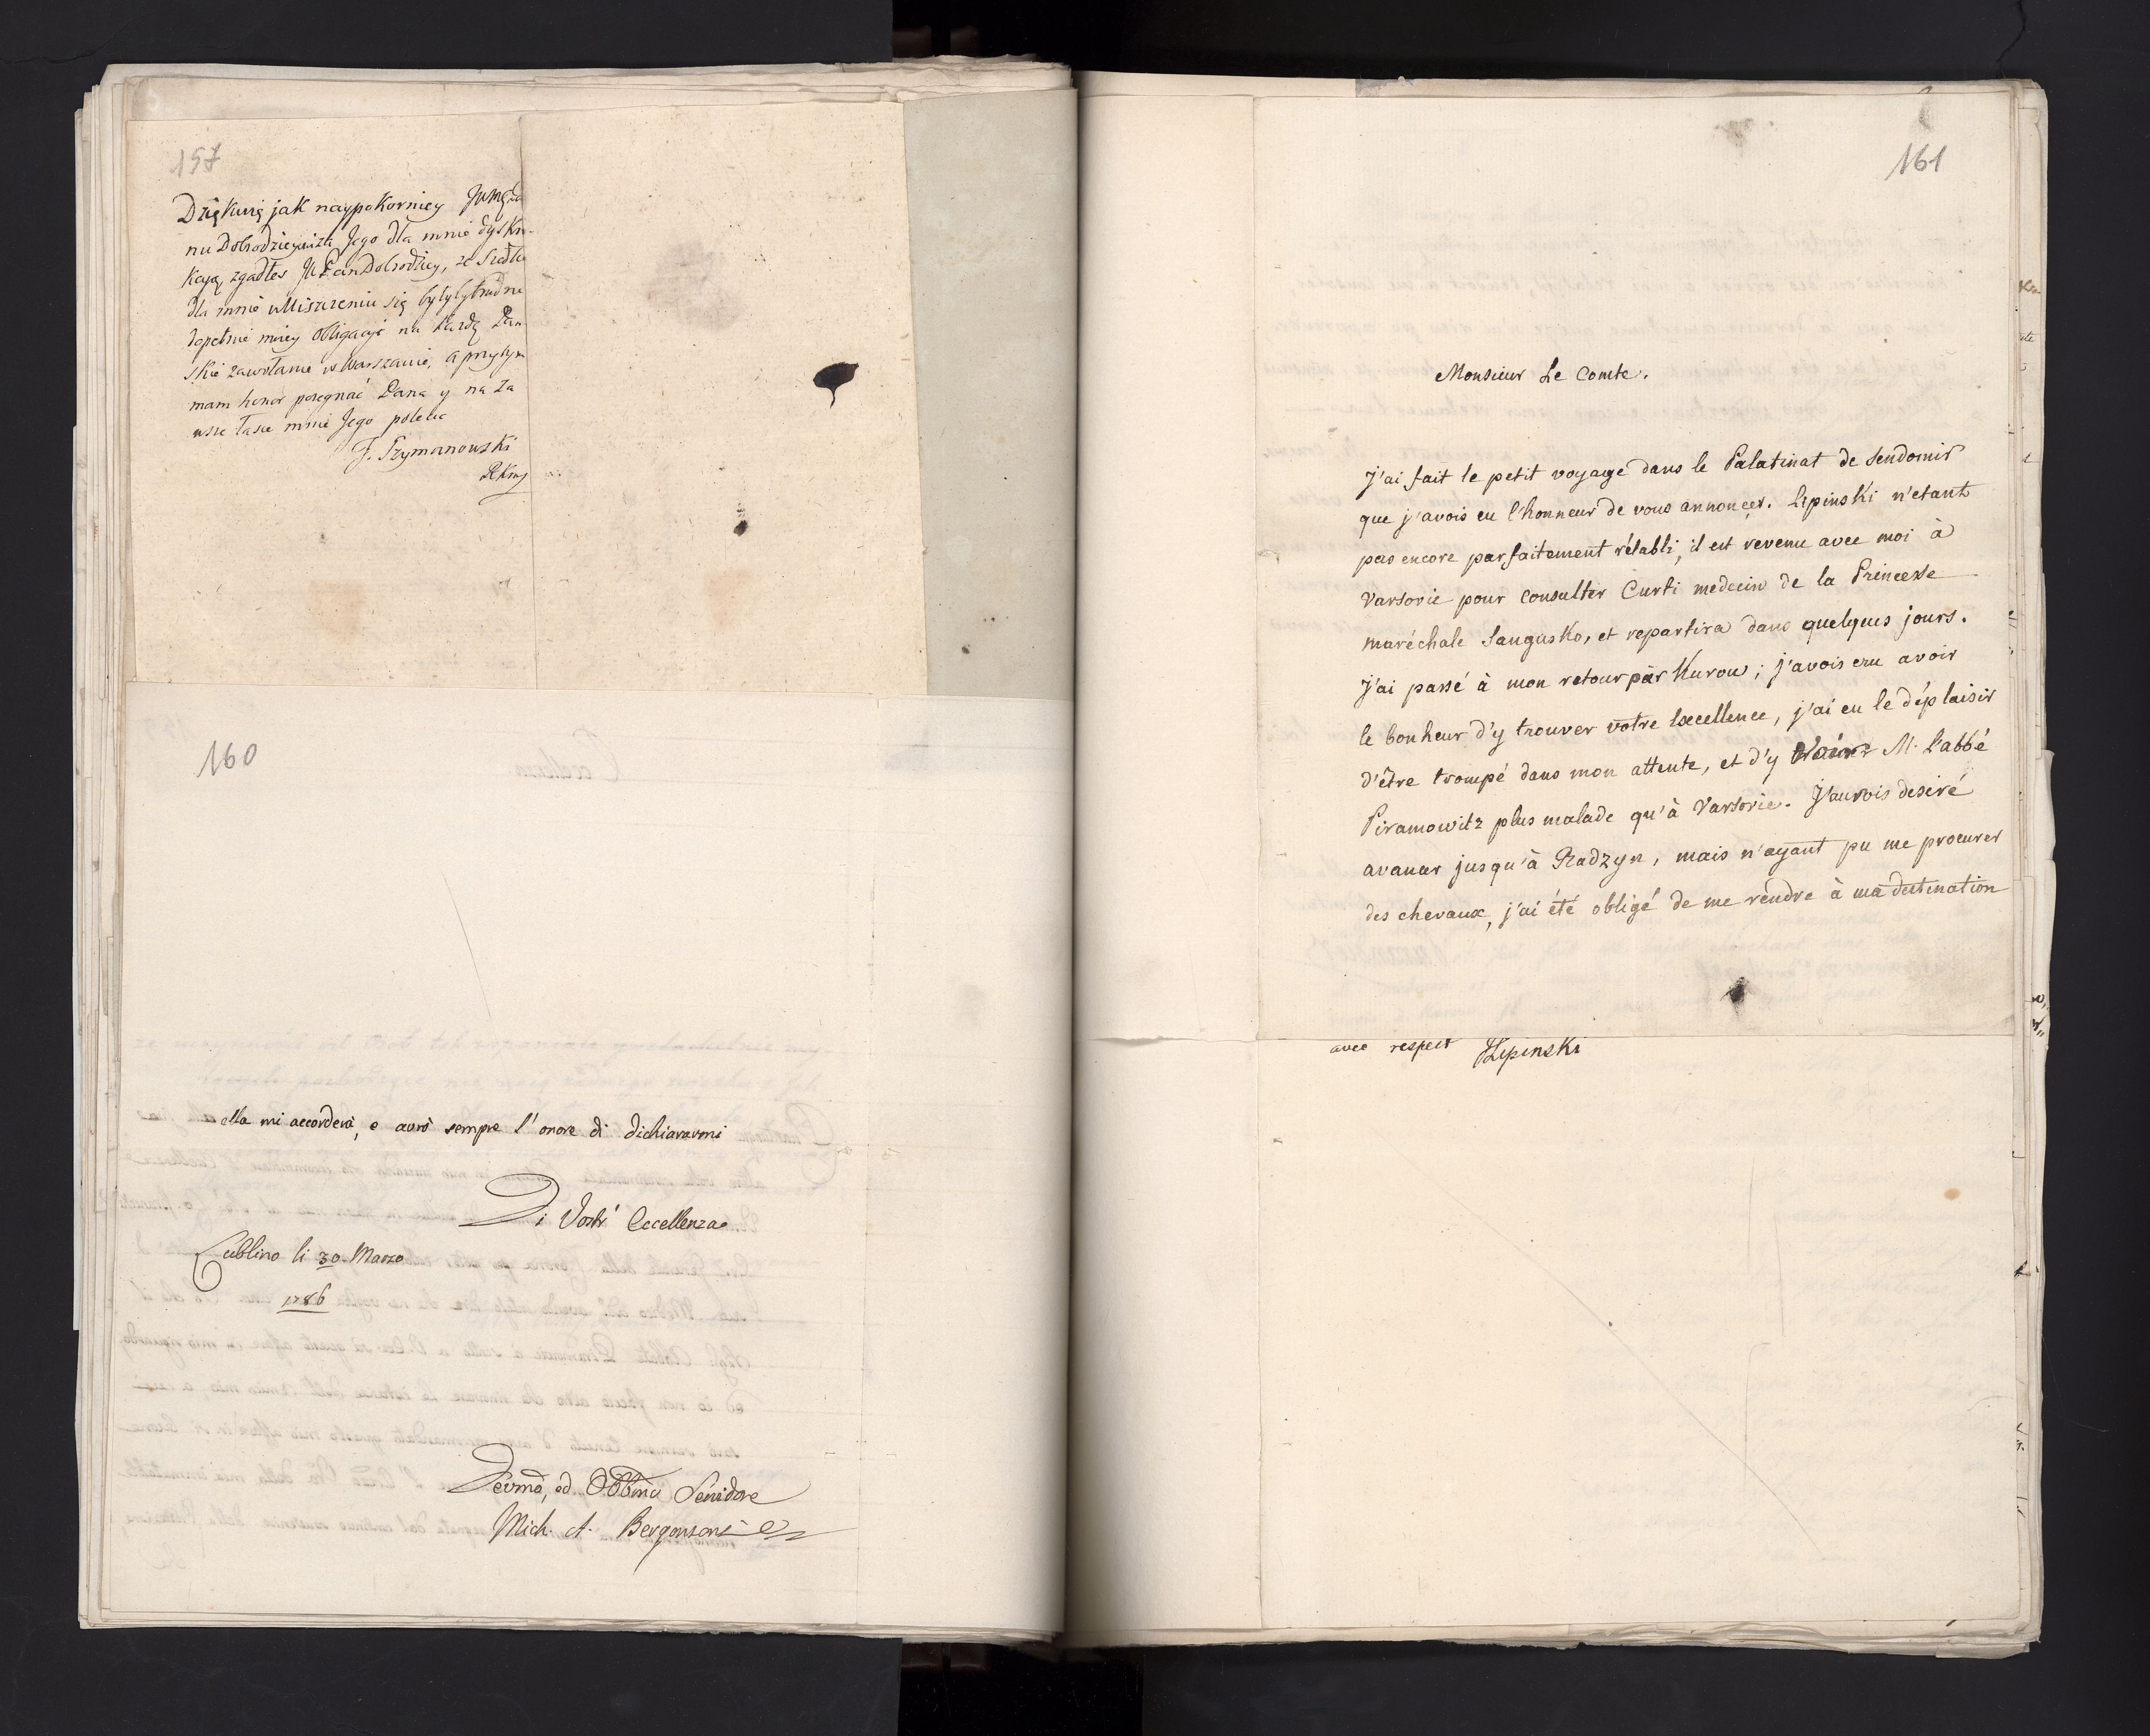 157
Dziękuię jak naypokorniey
nu Dobrodzieyowi za Jego dla mnie dyskre-
kcyą, zgadłeś JW Pan Dobrodziey, że Siedlce
dla mnie w Uiszczeniu się byłyby trudne
dopełnię moiey obligacyi na każdę Pań
skie zawołanie w Warszawie, a przytym
mam honor pożegnać Pana y na za
wsze łasce mnie Jego polecić
J. Szymanowski
160
ella mi accorderà, e avrò sempre l'onore di dichiararmi
Di Vostr' Eccellenza
Lublino li 30. Marzo
1786
Devmo, ed Obbmo Servidore
Mich. A. Bergonzoni
161
Monsieur Le Comte.
J'ai fait le petit voyage dans le Palatinat de Sendomir
que j'avois eu l'honneur de vous annoncer. Lipinski n'etant
pas encore parfaitement rétabli, il est revenu avec moi à
Varsovie pour consulter Curti medecin de la Princesse
maréchale Sangusko, et repartira dans quelques jours.
J'ai passé à mon retour par Kurow; j'avois cru avoir
le bonheur d'y trouver votre Excellence, j'ai eu le déplaisir
d'être trompé dans mon attente, et d'y voir M. L'abbé
Piramowitz plus malade qu'à Varsovie. J'aurois desiré
avancer jusqu'à Radzyn, mais n'ayant pu me procurer
des chevaux, j'ai été obligé de me rendre à ma destination
avec respect Lipinski